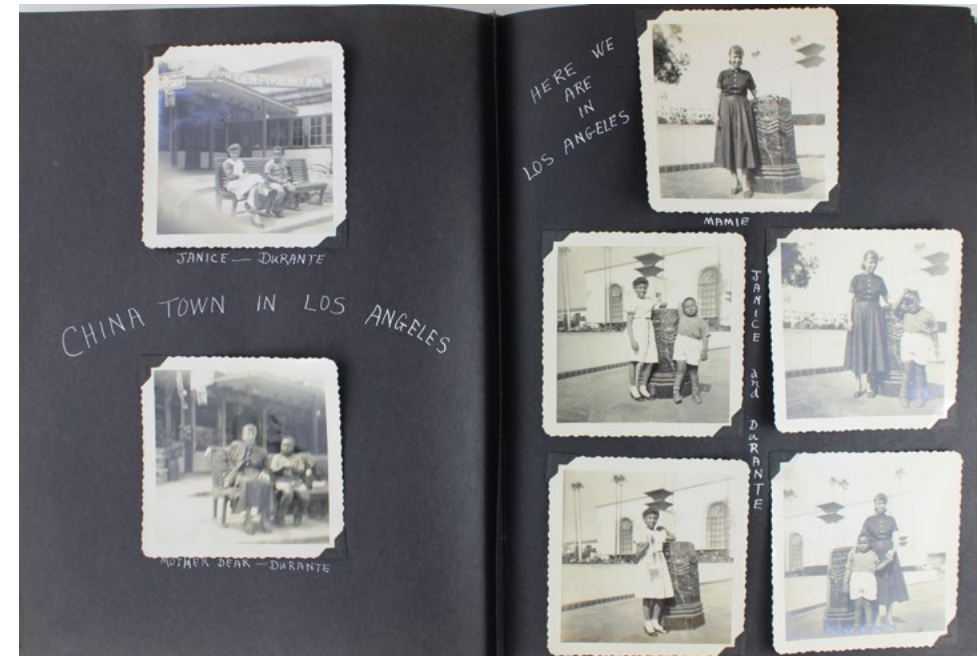 JANICE — DURANTE
CHINA TOWN IN LOS ANGELES
MOTHER DEAR — DURANTE
HERE WE
ARE
IN
LOS ANGELES
MAMIE
JANICE and DURANTE